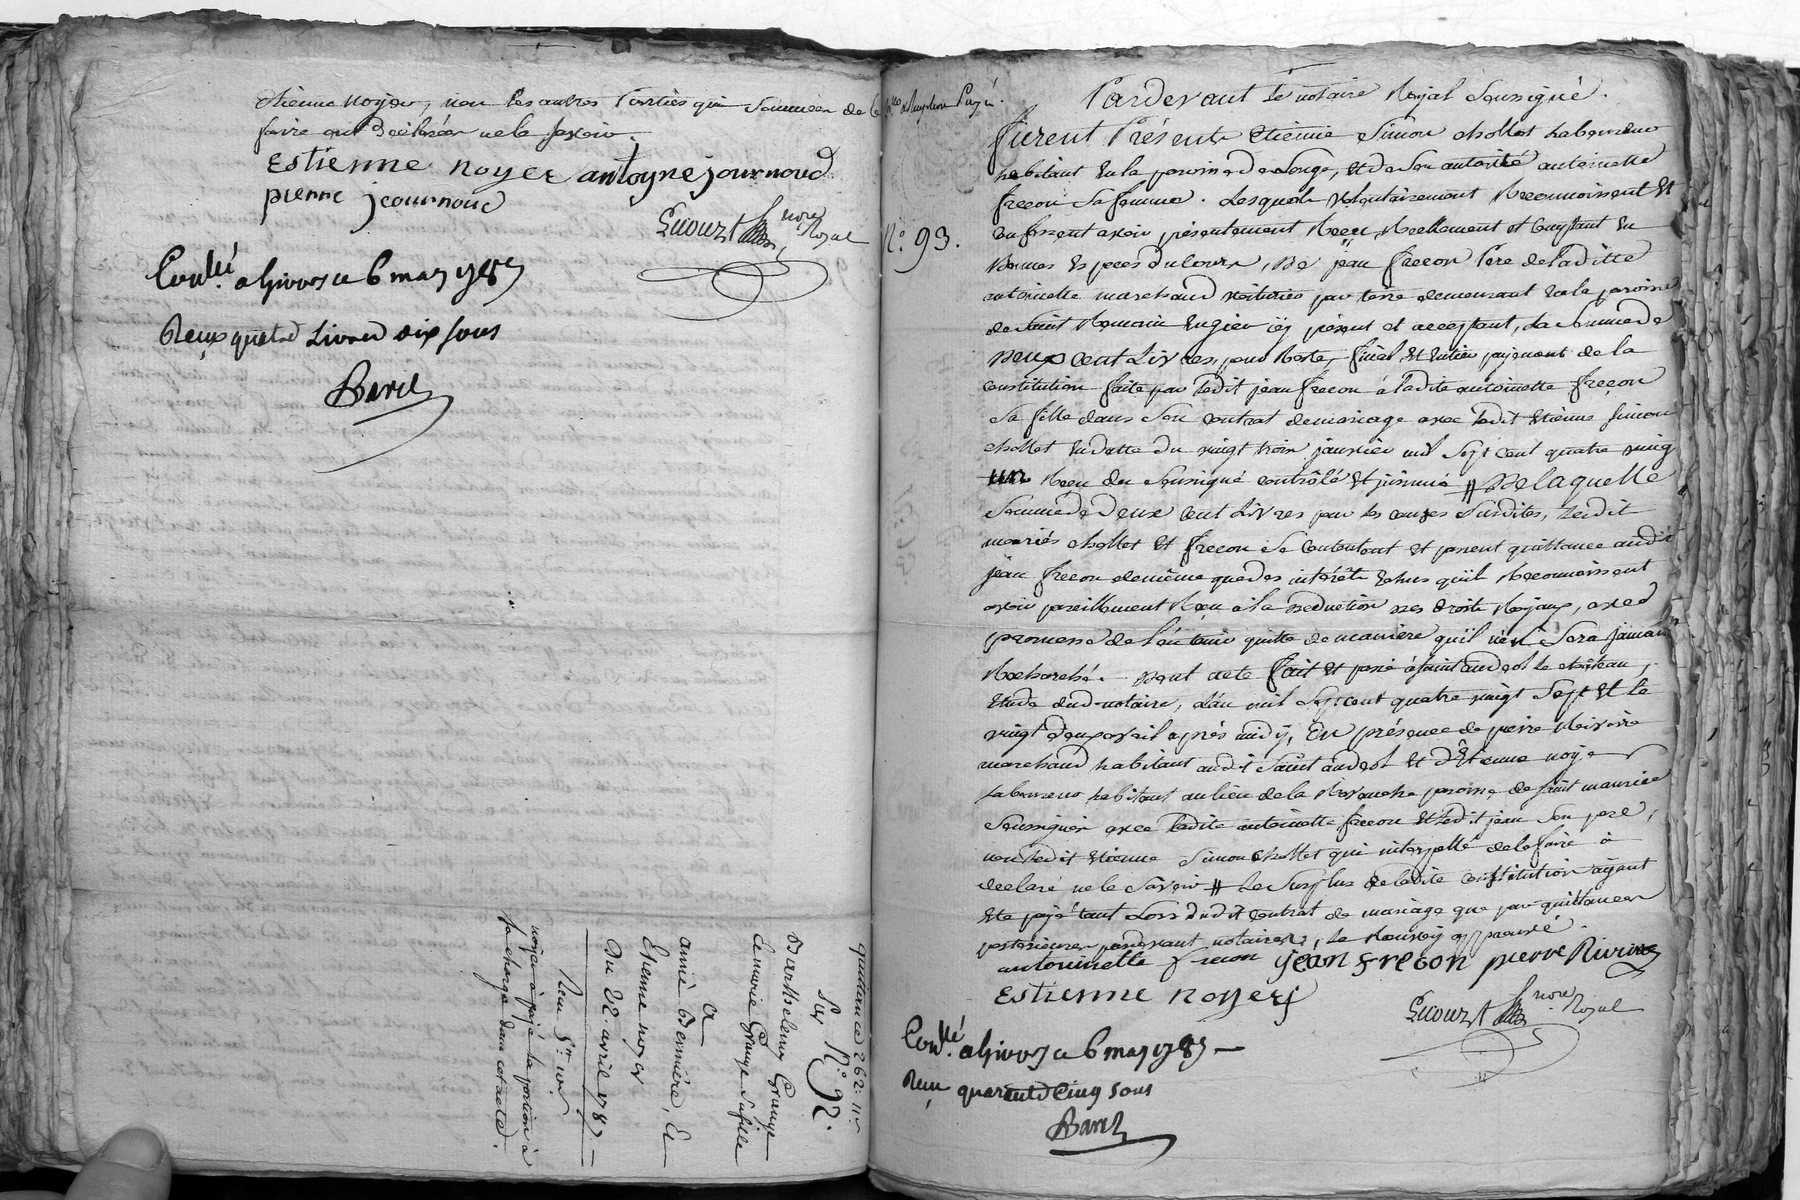 Etienne noyer, non les autres Parties qui sommées de le
faire ont déclarées ne le sçavoir.
Estienne noyer antoyne journoud
pierre journoud
nore Royal
Conllé a Givors ce 6 may 1787
Reçu quatre Livres dix sous
Barel
quittance 262: 11s
Sur N.o 92.
Barthelemy Grange
Lemoarie Grange sa fille
a
Etienne noyer
Du 22. avril 1787
noyer à payé la portion à
sa charge dans cet acte.
N.o 93.
Pardevant le notaire Royal Soussigné.
furent Présents Etienne Simon chollet laboureur
habitant en la paroisse de Longe, et de son autorité antoinette
frecon sa femme. Lesquels volontairement Reconnoissent et
confessent avoir présentement Reçu Reellement et Comptant en
Bonnes Especes du Cours, De jean frecon Pere de laditte
antoinette marchand voiturier par terre demeurant en la paroisse
de Saint Romain en gier icy présent et acceptant, la Somme de
Deux cent Livres, pour Reste, final et entier payement de la
constitution faite par ledit jean frecon à ladite antoinette frecon
sa fille dans son contrat de mariage avec ledit Etienne Simon
chollet en datte du vingt trois janvier mil sept cent quatre vingt
un Reçu du soussigné contrôlé et jnsinué # De laquelle
Somme de Deux cent Livres pour les causes susdites, lesdit
mariés chollet et frecon se contentent et passent quittance audit
jean frecon de même que des intérêts échus qu'ils Reconnoissent
avoir pareillement Reçu à la deduction des droits Royaux, avec
promesse de l'en tenir quitte de maniere qu'il n'en Sera jamais
Recherché. Dont acte fait et passé à saint andeol le château,
Etude dud. notaire, L'an mil sept cent quatre vingt sept et le
vingt deux avril après midy, En présence de pierre Riviere
marchand habitant audit Saint andeol et d'Etienne noyer
laboureur habitant au lieu de la Rovanche paroisse de saint maurice
Soussignés avec ladite antoinette frecon et ledit jean son pere,
non ledit Etienne Simon chollet qui interpellé de le faire à
declaré ne le Sçavoir # Le Surplus de ladite constitution ayant
Eté payé tant Lors dudit contrat de mariage que par quittances
posterieures pardevant notaires, le Renvoy approuvé.
antoinette frecon jean frecon pierre Riviere
Estienne noyer
nore Royal
Conllé a Givors ce 6 may 1787
Reçu quarante Cinq sous
Barel